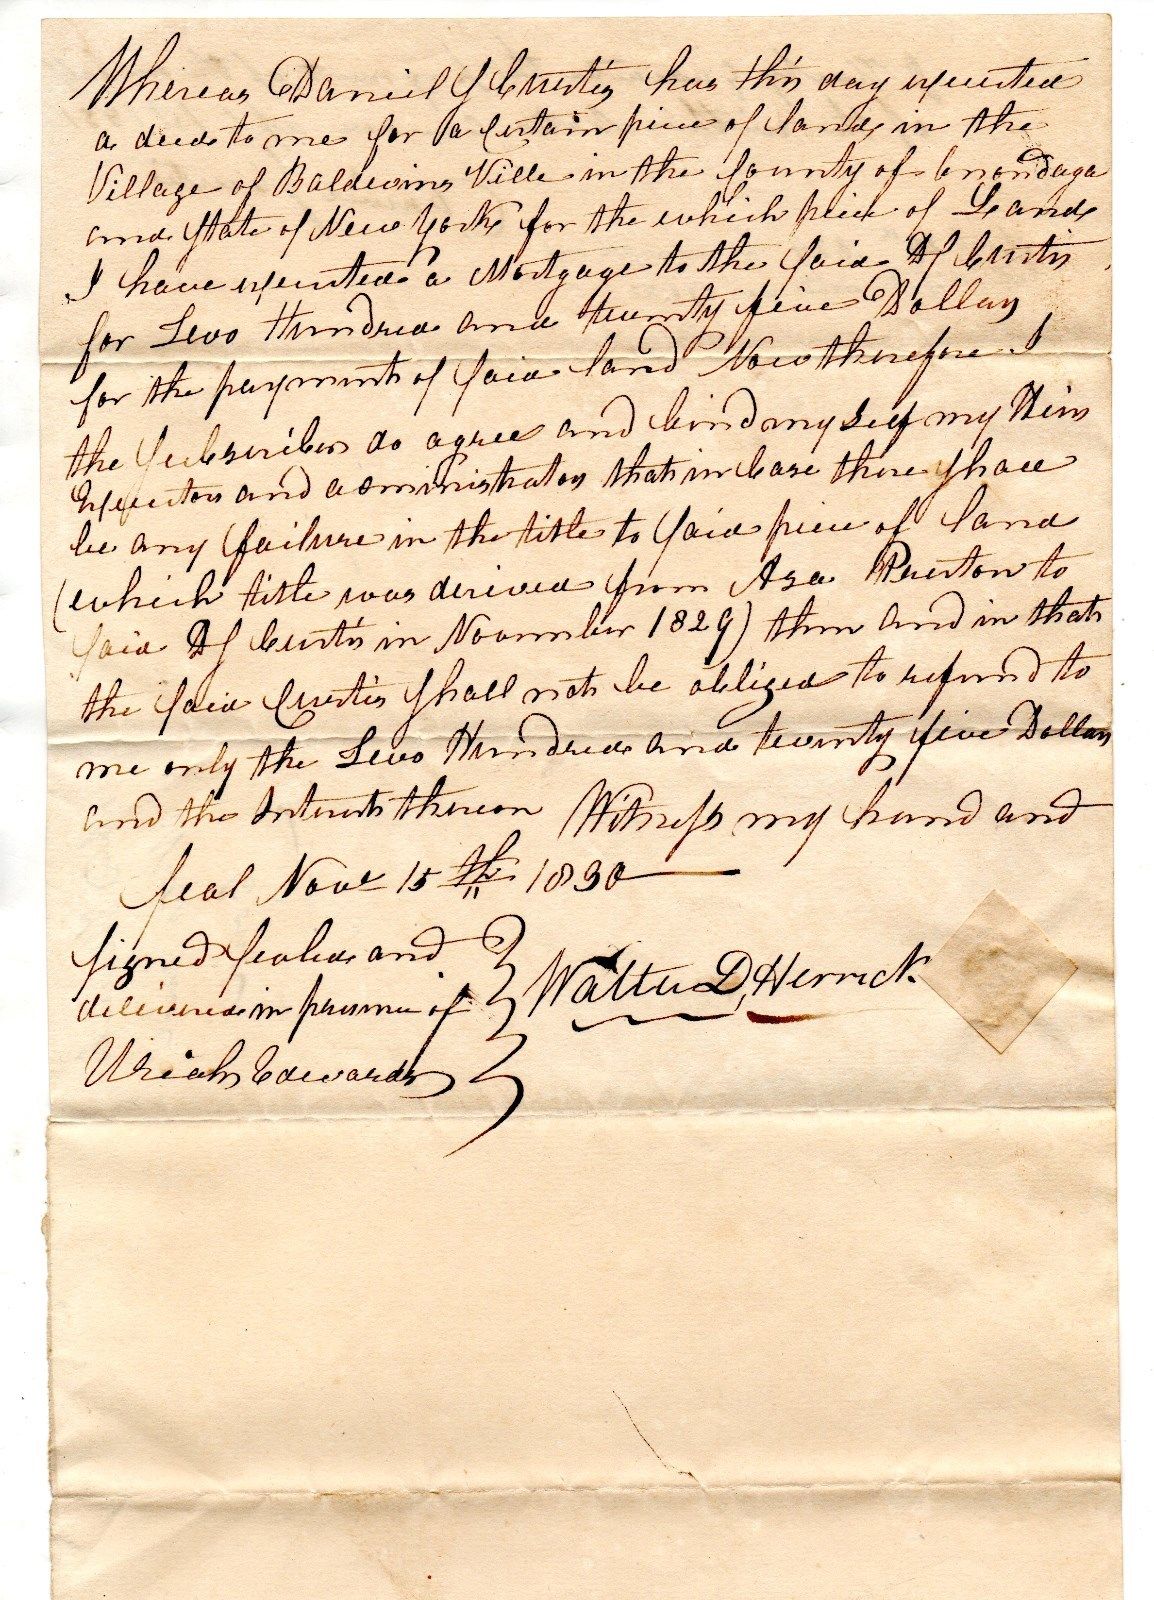 Whereas Daniel S Curtis has this day executed
a deed to me for a certain piece of land in the
Village of Baldwins Ville in the County of Onondaga
and State of New York for the which piece of Land
I have executed a Mortgage to the Said D S Curtis
for Two Hundred and twenty five Dollars
for the payment of Said land Now therefore I
the Subscriber do agree and bind my Self my Heirs
Executors and administrators that in Case there Shall
be any failure in the title to Said piece of land
(which title was derived from Asa to
Said D S Curtis in November 1829) then and in that
the Said Curtis Shall not be obliged to refund to
me only the Two Hundred and twenty five Dollars
and the Interest thereon Witness my hand and
Seal Novr 15th 1830
Signed Sealed and
delivered in presence of
Walter D, Herrick
Uriah Edwards